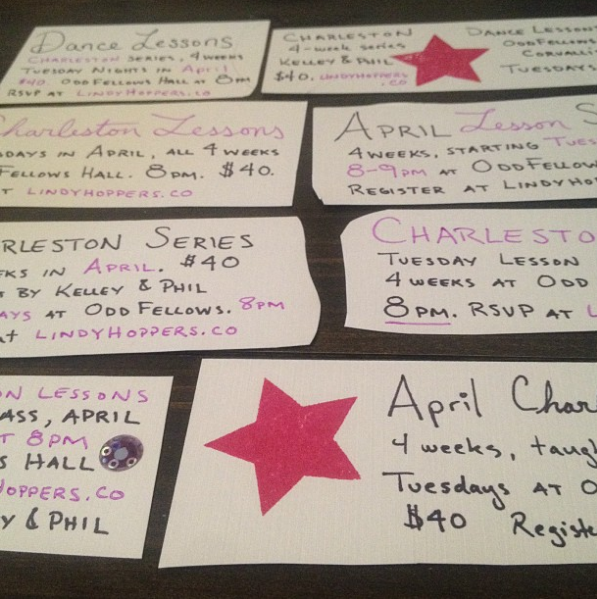 Dance Lessons
CHARLESTON SERIES, 4 WEEKS
TUESDAY NIGHTS IN April
$40. ODD FELLOWS HALL AT 8PM
RSVP AT LINDYHOPPERS.CO
CHARLESTON
4-week series
KELLEY & PHIL
$40. LINDYHOPPERS
.CO
DANCE LESSON
ODDFELLOWS
CORVALLI
TUESDAYS
Charleston Lessons
SDAYS IN APRIL, ALL 4 WEEKS
FELLOWS HALL. 8PM. $40.
AT LINDYHOPPERS.CO
APRIL Lesson S
4 WEEKS, STARTING TUES
8-9PM AT ODDFELLOW
REGISTER AT LINDYHOP
RLESTON SERIES
EKS IN APRIL. $40
T BY KELLEY & PHIL
AYS AT ODD FELLOWS. 8PM
At LINDYHOPPERS.CO
CHARLESTO
TUESDAY LESSON
4 WEEKS AT ODD
8PM. RSVP AT L
ON LESSONS
ASS, APRIL
T 8PM
S HALL
HOPPERS.CO
Y & PHIL
April Char
4 weeks, taugh
Tuesdays AT O
$40 Registe